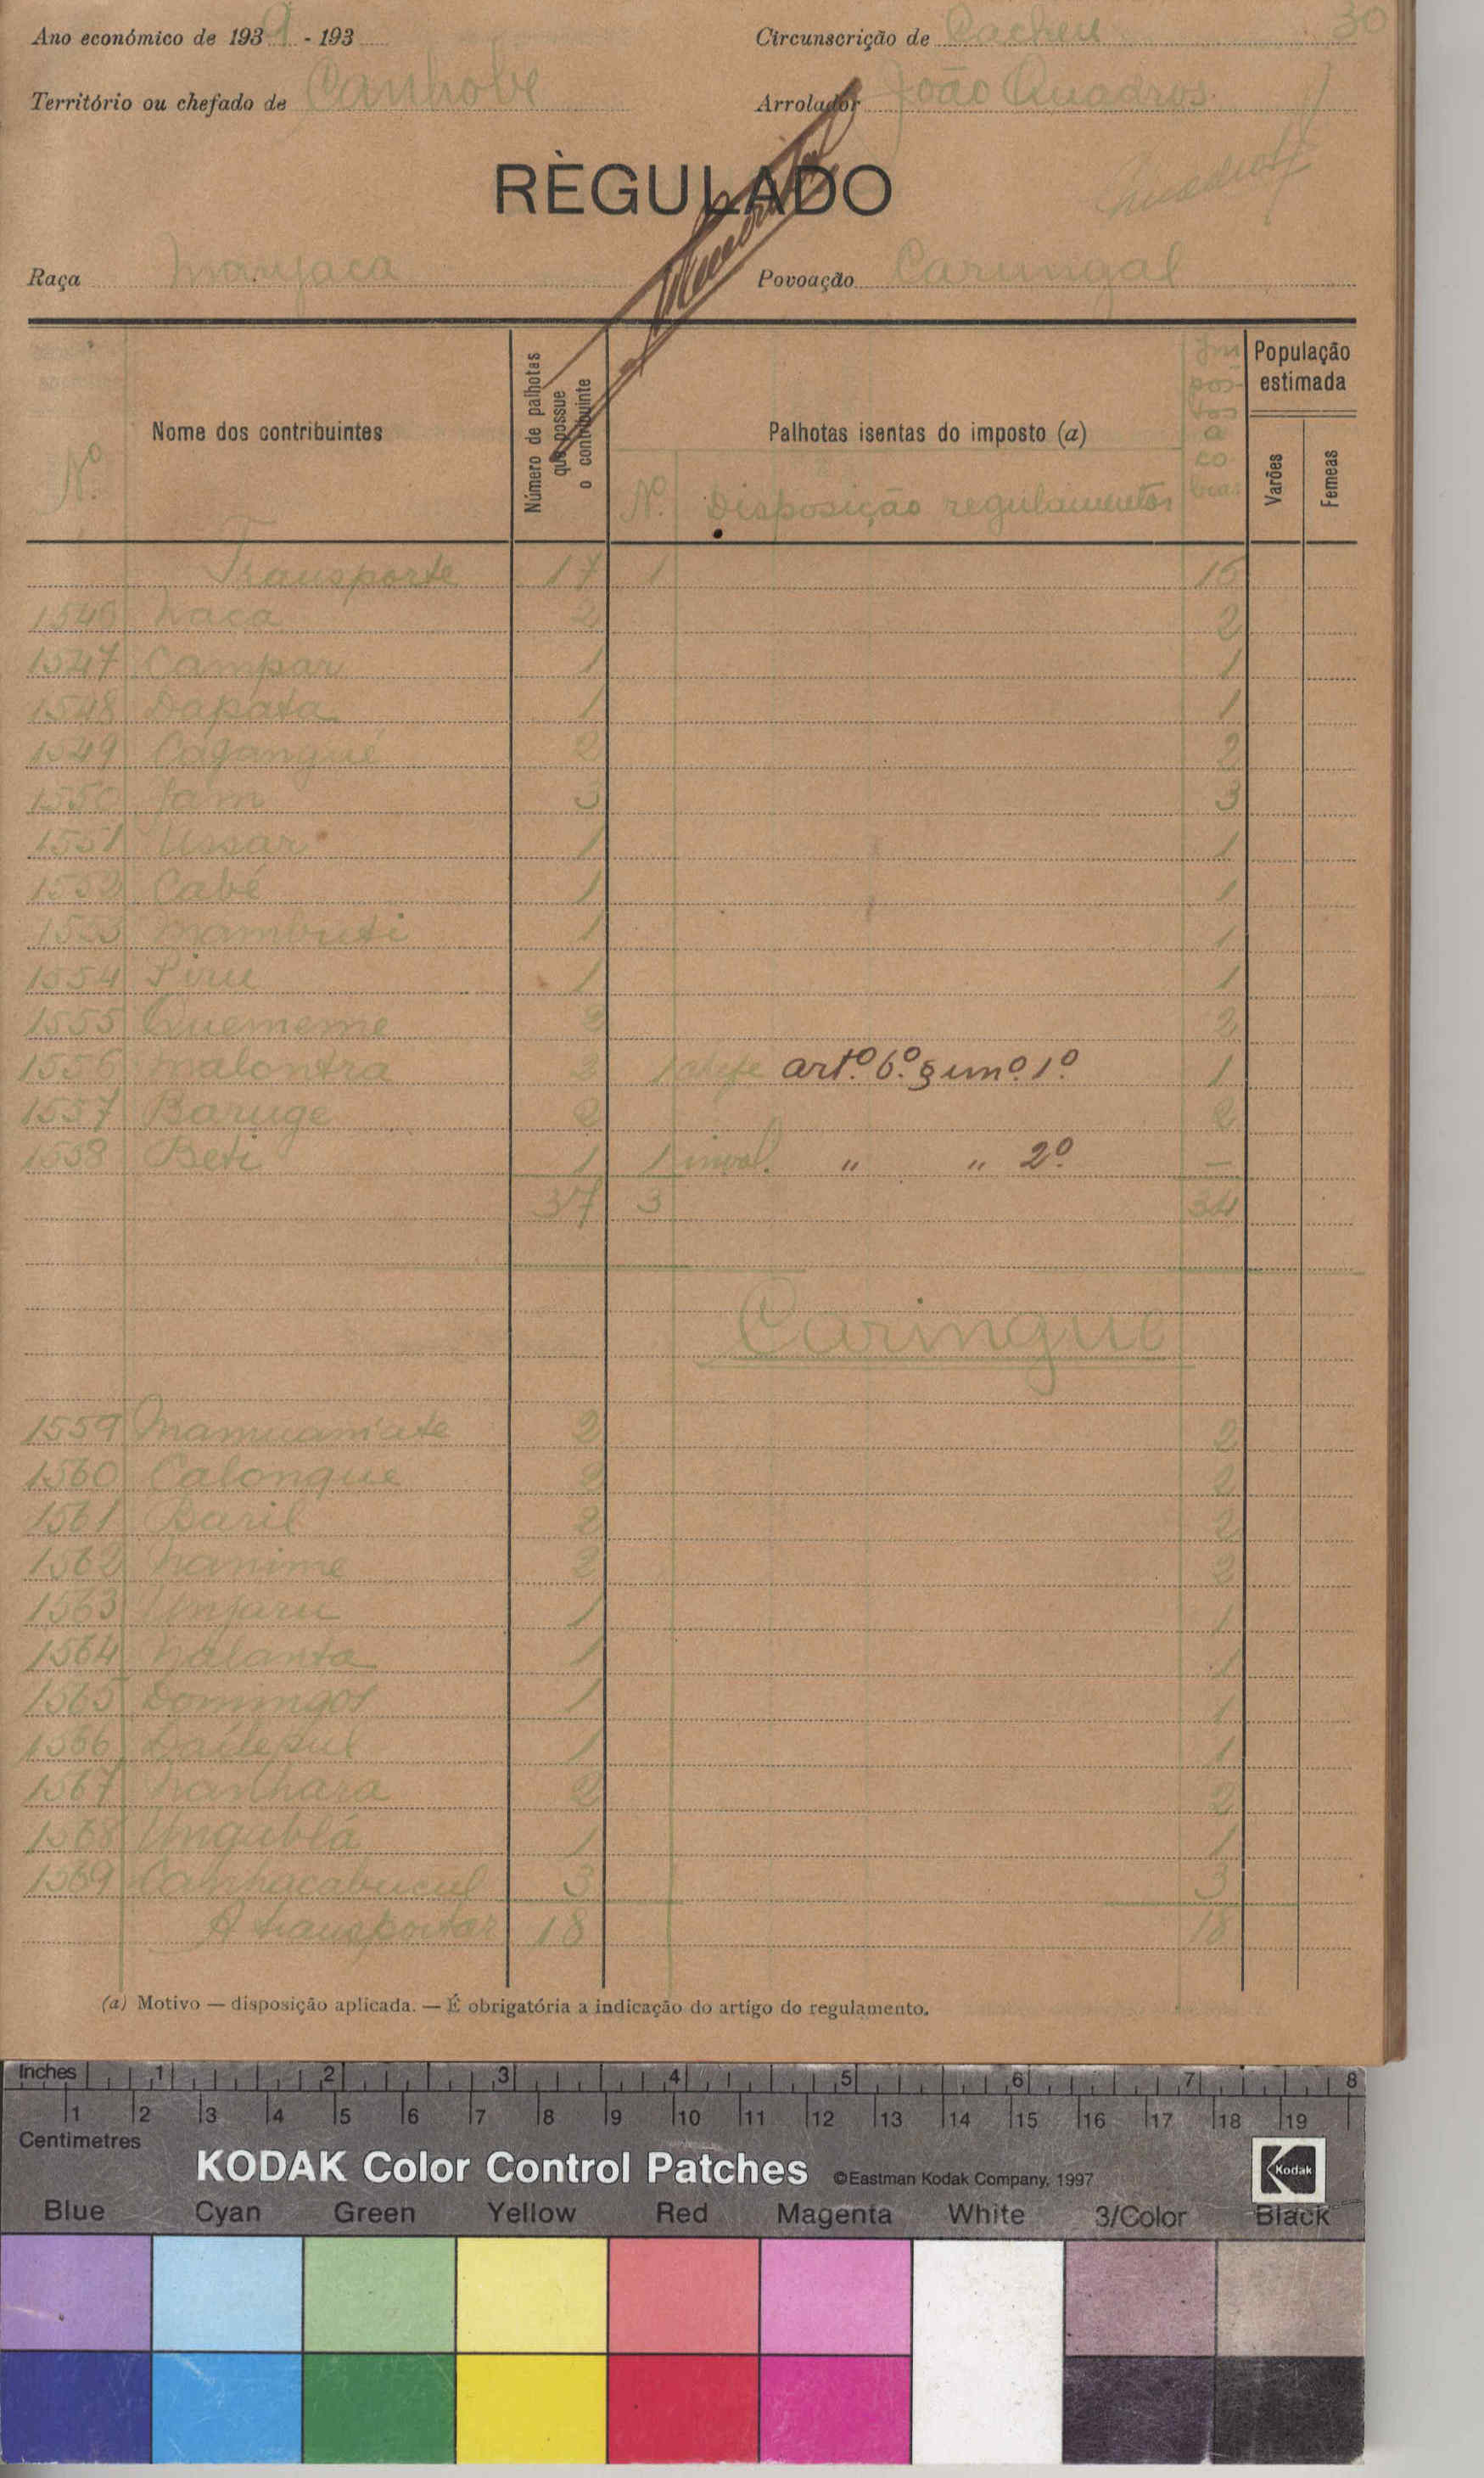 30
Ano económico de 1939 - 193
Circunscrição de Cacheu
Território ou chefado de Canhobe
Arrolador João Quadros
RÈGULADO
Raça Manjaca
Povoação Carungal
Nº
Nome dos contribuintes
Número de palhotas que possue o contribuinte
Palhotas isentas do imposto (a)
Nº. Disposição regulamentos
Impostos a cobrar
População estimada
Varões
Femeas
Transporte 17 1 16
1546 Naca 2 2
1547 Campar 1 1
1548 Dapata 1 1
1549 Cagangué 2 2
1550 Jam 3 3
1551 Ussar 1 1
1552 Cabé 1 1
1553 Nambuti 1 1
1554 1 1
1555 Quememe 2 2
1556 Nalontra 2 1 chefe artº. 6º. § un º. 1º 1
1557 Baruge 2 2
1558 Beti 1 1 inval. " " 2º —
37 3 34
Caringue
1559 2 2
1560 Calongue 2 2
1561 Baril 2 2
1562 Nanime 2 2
1563 Unjaru 1 1
1564 Nalanta 1 1
1565 Domingos 1 1
1566 1 1
1567 Nanhara 2 2
1568 Ungublá 1 1
1569 Canhacabucul 3 3
A transportar 18 18
(a) Motivo — disposição aplicada. — É obrigatória a indicação do artigo do regulamento.
Inches 1 2 3 4 5 6 7 8
1 2 3 4 5 6 7 8 9 10 11 12 13 14 15 16 17 18 19
Centimetres
KODAK Color Control Patches ©Eastman Kodak Company, 1997 Kodak
Blue Cyan Green Yellow Red Magenta White 3/Color Black